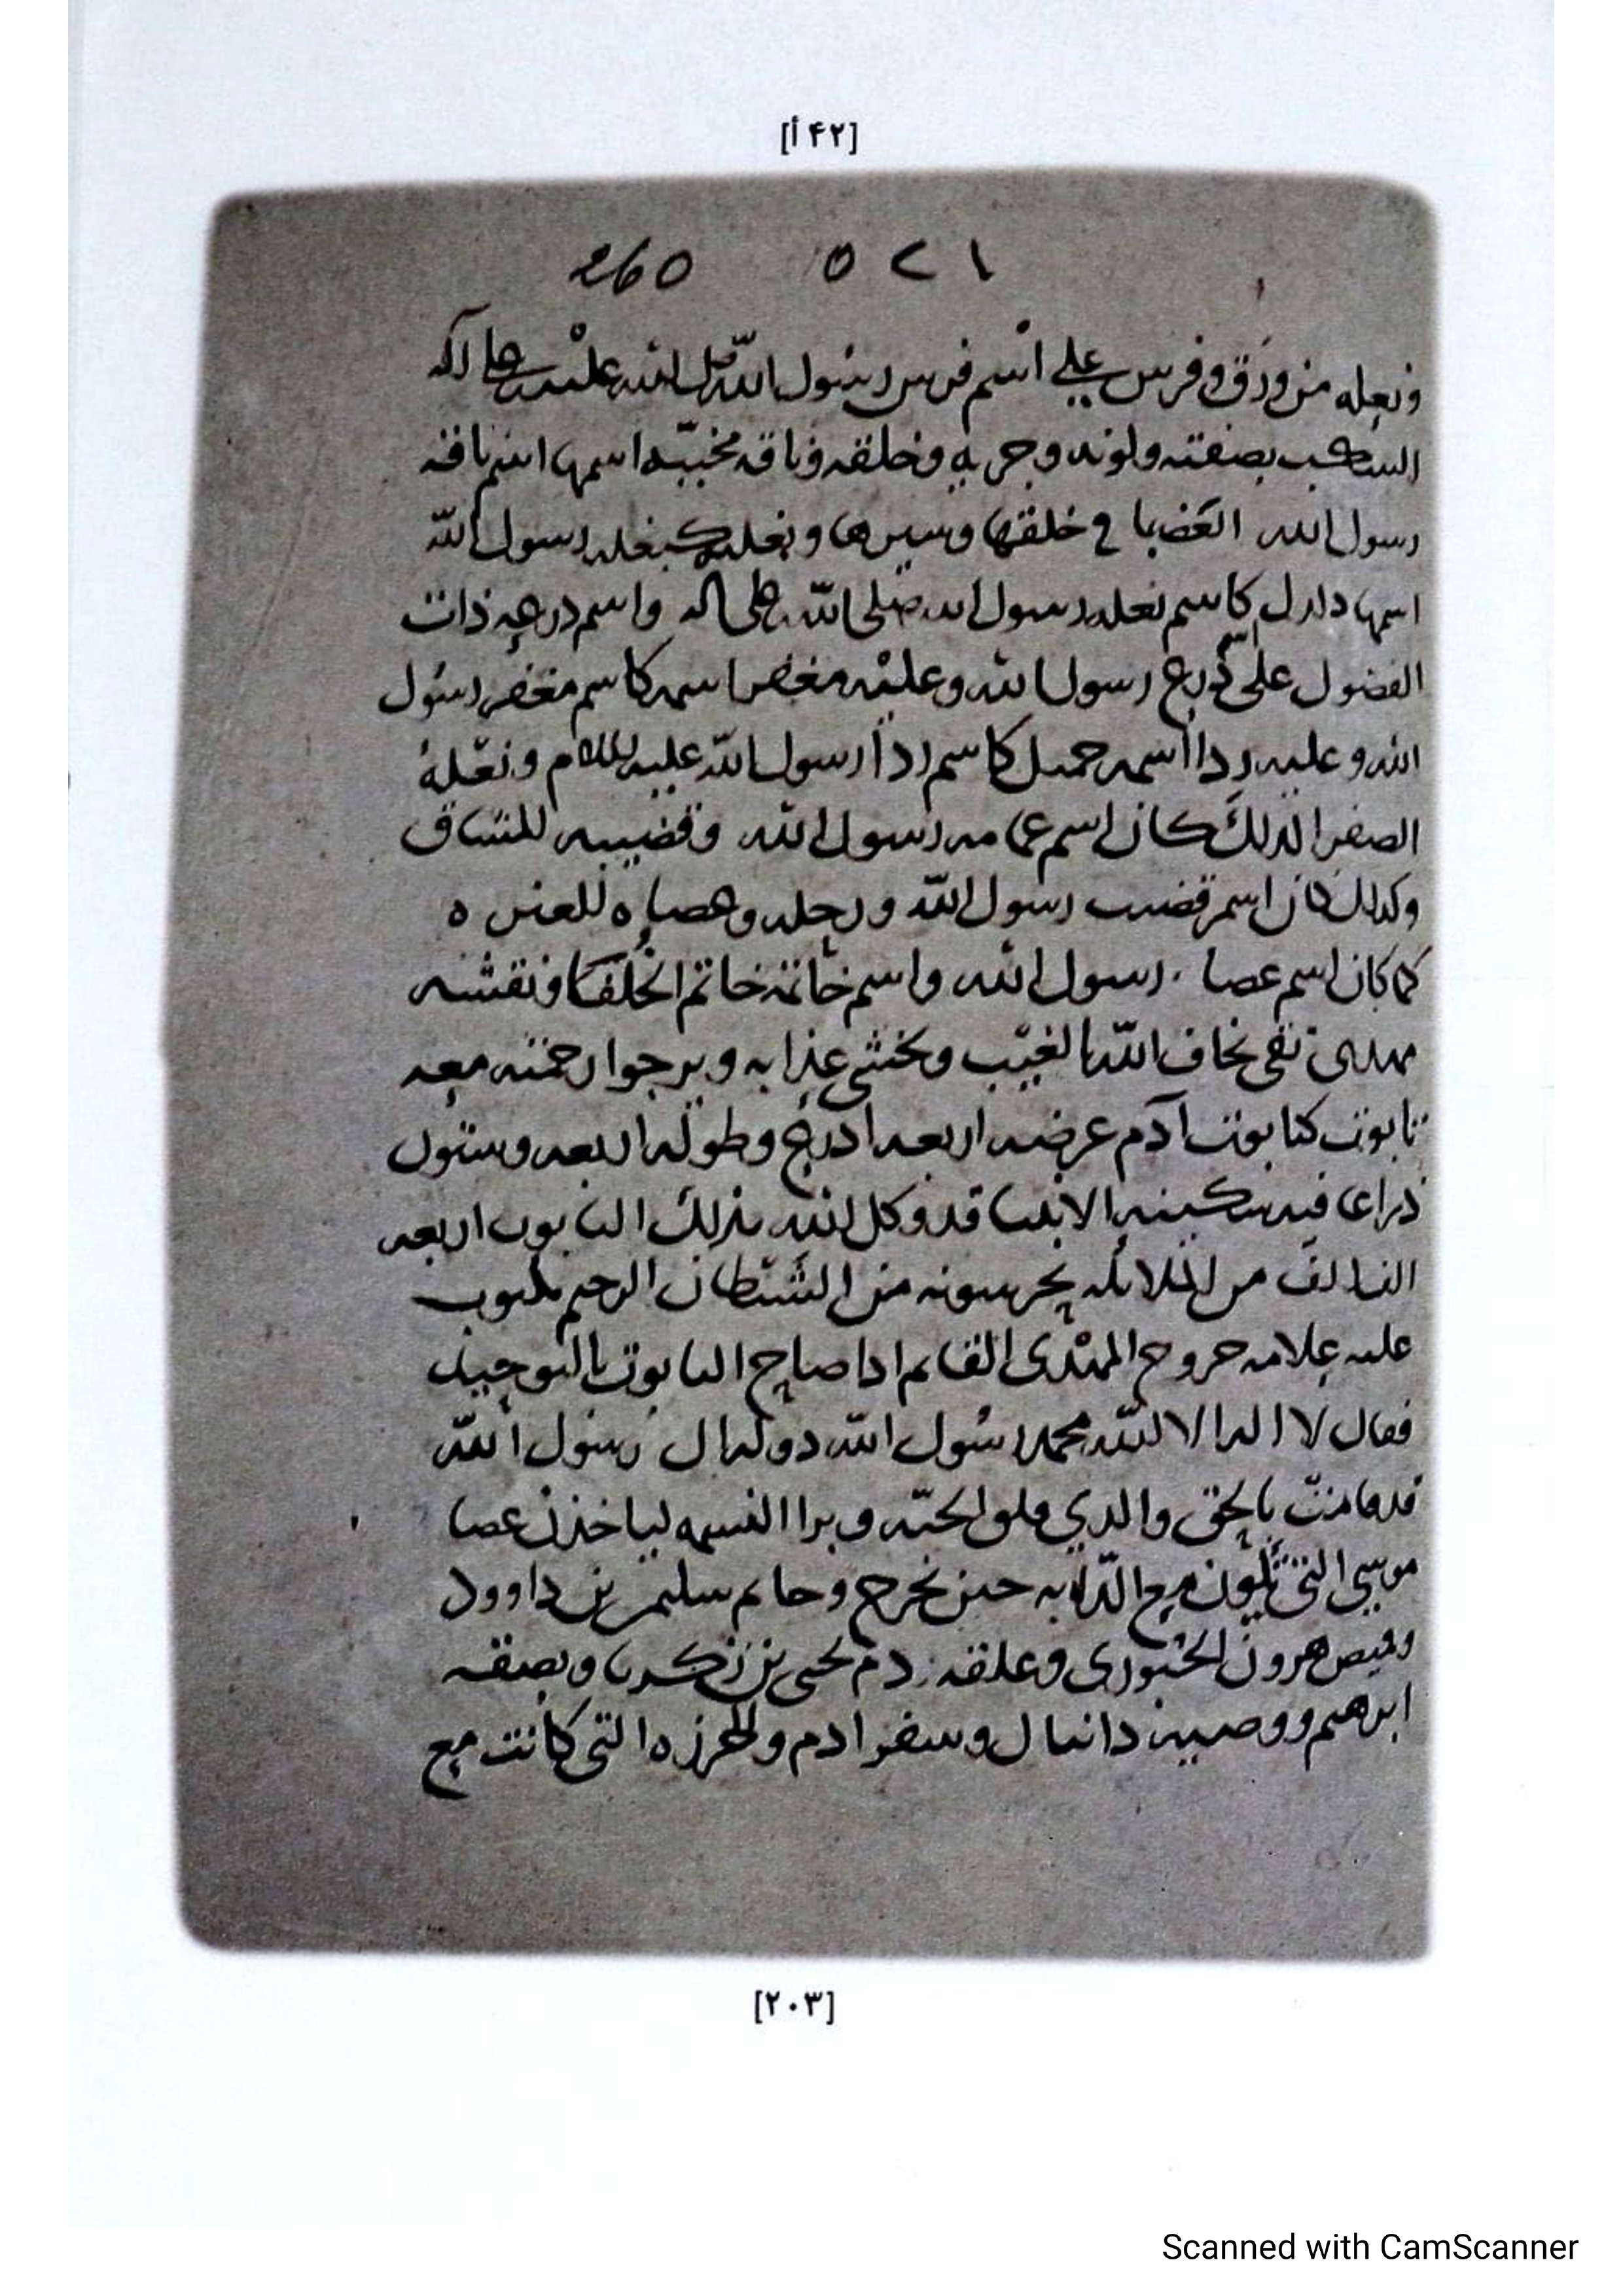 [۴۲ أ]
260 ٥٢١
ونعله من ورق وفرس على اسم فرس رسول الله صلى الله عليه وعلى اله
السكب بصفته ولونه وجريه وخلقه وناقه اسمها اسم ناقه
رسول الله العضبا في خلقها وسيرها وبغله كبغله رسول الله
اسمها دلدل كاسم بغله رسول الله صلى الله على اله واسم درعه ذات
الفضول على درع رسول الله وعليه مغفر اسمه كاسم مغفر رسول
الله وعليه ردا اسمه جميل كاسم ردا رسول الله عليه السلام
الصفرا لذلك كان اسم عمامه رسول الله وقضيبه للمشاق
وكذلك كان اسم قضيب رسول الله
كما كان اسم عصا رسول الله واسم خاتمه خاتم الخلفا ونقشه
مهدى تقى يخاف الله بالغيب ويخشى عذابه ويرجوا رحمته معه
تابوت كتابوت آدم عرضه اربعه ادرع وطوله اربعه وستون
ذراعا فيه سكينه الانبيا قد وكل الله بذلك التابوت اربعه
الف من الملائكه يحرسونه من الشيطان الرجيم مكتوب
عليه علامه خروج المهدى القايم اذا صاح التابوت بالتوحيد
فقال لا اله الا الله محمد رسول الله دولة ال رسول الله
قد قامت بالحق والذي فلق الحبه وبرا النسمه لياخذن عصا
موسى التى تكون مع الدابه حين تخرج وخاتم سليمن بن داوود
وقميص هرون الحبورى وعلقه دم يحيى بن زكريا
ابرهيم ووصيه دانيال وسفر ادم والخرزه التى كانت مع
[٢٠٣]
Scanned with CamScanner